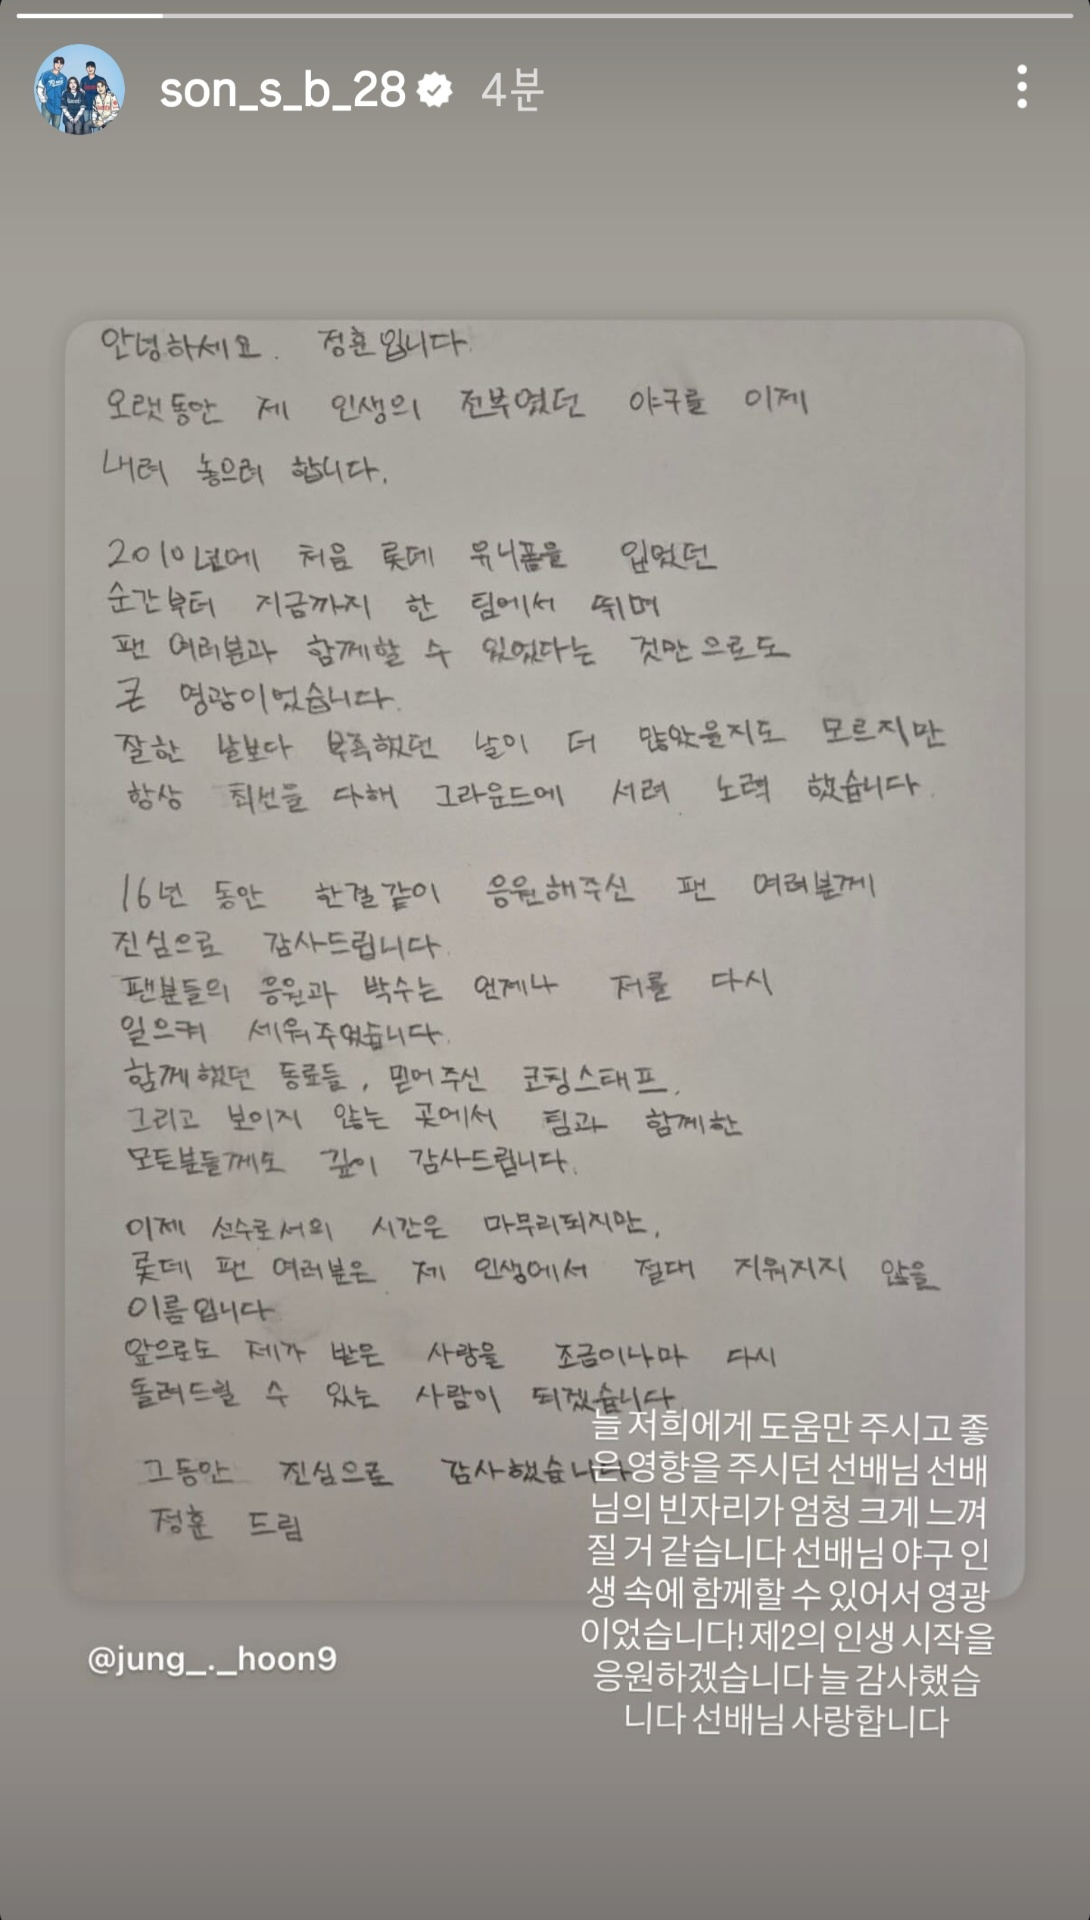 son_s_b_28 4분
안녕하세요. 정훈입니다.
오랫동안 제 인생의 전부였던 야구를 이제
내려 놓으려 합니다.
2010년에 처음 롯데 유니폼을 입었던
순간부터 지금까지 한 팀에서 뛰며
팬 여러분과 함께할 수 있었다는 것만으로도
큰 영광이었습니다.
잘한 날보다 부족했던 날이 더 많았을지도 모르지만
항상 최선을 다해 그라운드에 서려 노력 했습니다.
16년 동안 한결같이 응원해주신 팬 여러분께
진심으로 감사드립니다.
팬분들의 응원과 박수는 언제나 저를 다시
일으켜 세워주었습니다.
함께했던 동료들, 믿어주신 코칭스태프,
그리고 보이지 않는 곳에서 팀과 함께한
모든분들께도 깊이 감사드립니다.
이제 선수로서의 시간은 마무리되지만,
롯데 팬 여러분은 제 인생에서 절대 지워지지 않을
이름입니다
앞으로도 제가 받은 사랑을 조금이나마 다시
돌려드릴 수 있는 사람이 되겠습니다.
그동안 진심으로 감사했습니다
정훈 드림
늘 저희에게 도움만 주시고 좋
은 영향을 주시던 선배님 선배
님의 빈자리가 엄청 크게 느껴
질 거 같습니다 선배님 야구 인
생 속에 함께할 수 있어서 영광
이었습니다! 제2의 인생 시작을
응원하겠습니다 늘 감사했습
니다 선배님 사랑합니다
@jung_._hoon9